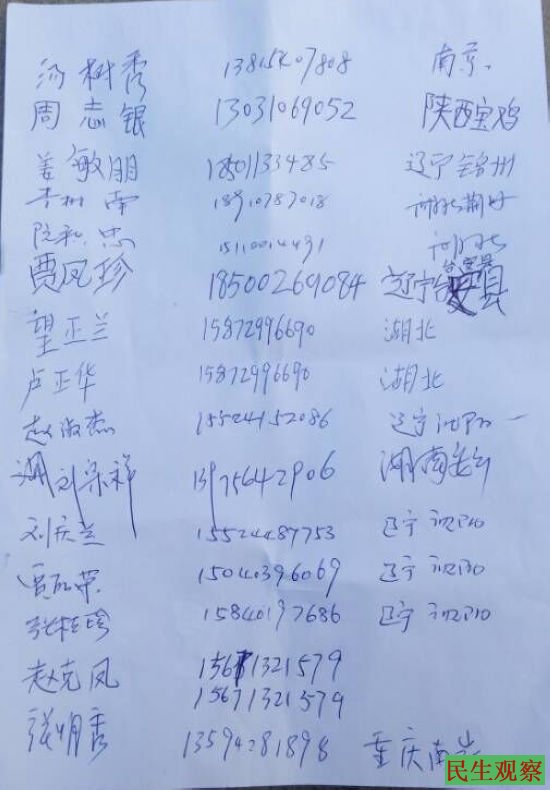 汤树秀 13815407808 南京.
周志银 13031069052 陕西宝鸡
姜敏朋 18501133485 辽宁锦州
南 18910787018 湖北荆州
忠 15110014431 湖北
贾凤珍 18500269084 辽宁台安县
望正兰 15872996690 湖北
卢正华 15872996690 湖北
赵淑杰 15524152086 辽宁沈阳
刘宗祥 13975642906 湖南
刘庆兰 15524487753 辽宁沈阳
贾 荣 15040396069 辽宁沈阳
张桂珍 15840197686 辽宁沈阳
赵克凤 15671321579
15671321579
张明秀 13594281898 重庆南岸
民生观察